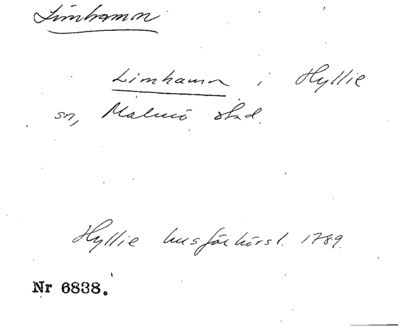 Limhamn
Limhamn i Hyllie
sn, Malmö stad.
Hyllie husförhörsl. 1789.
Nr 6838.